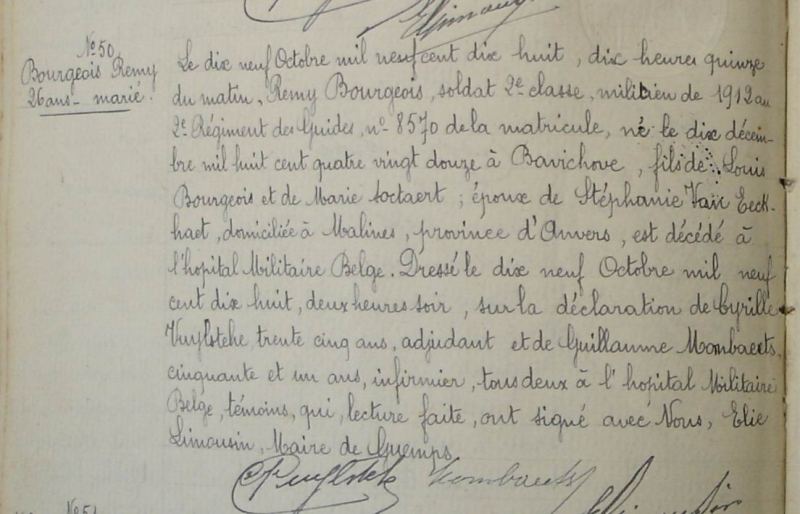 Nº 50
Bourgeois Remy
26 ans - marié.
Le dix neuf Octobre mil neuf cent dix huit, dix heures quinze
du matin, Remy Bourgeois, soldat 2e classe, milicien de 1912 au
2e Régiment des Guides, nº 8570 de la matricule, né le dix décem-
bre mil huit cent quatre vingt douze à Bavichove, fils de Louis
Bourgeois et de Marie Soctaert ; époux de Stéphanie Van Eeck-
haet, domiciliée à Malines, province d'Anvers, est décédé à
l'hopital Militaire Belge. Dressé le dix neuf Octobre mil neuf
cent dix huit, deux heures soir, sur la déclaration de Cyrille
Vuylsteke, trente cinq ans, adjudant et de Guillaume Mombaerts,
cinquante et un ans, infirmier, tous deux à l'hopital Militaire
Belge, témoins, qui, lecture faite, ont signé avec Nous, Elie
Limousin, Maire de Guemps.
Mombaerts
Nº 51